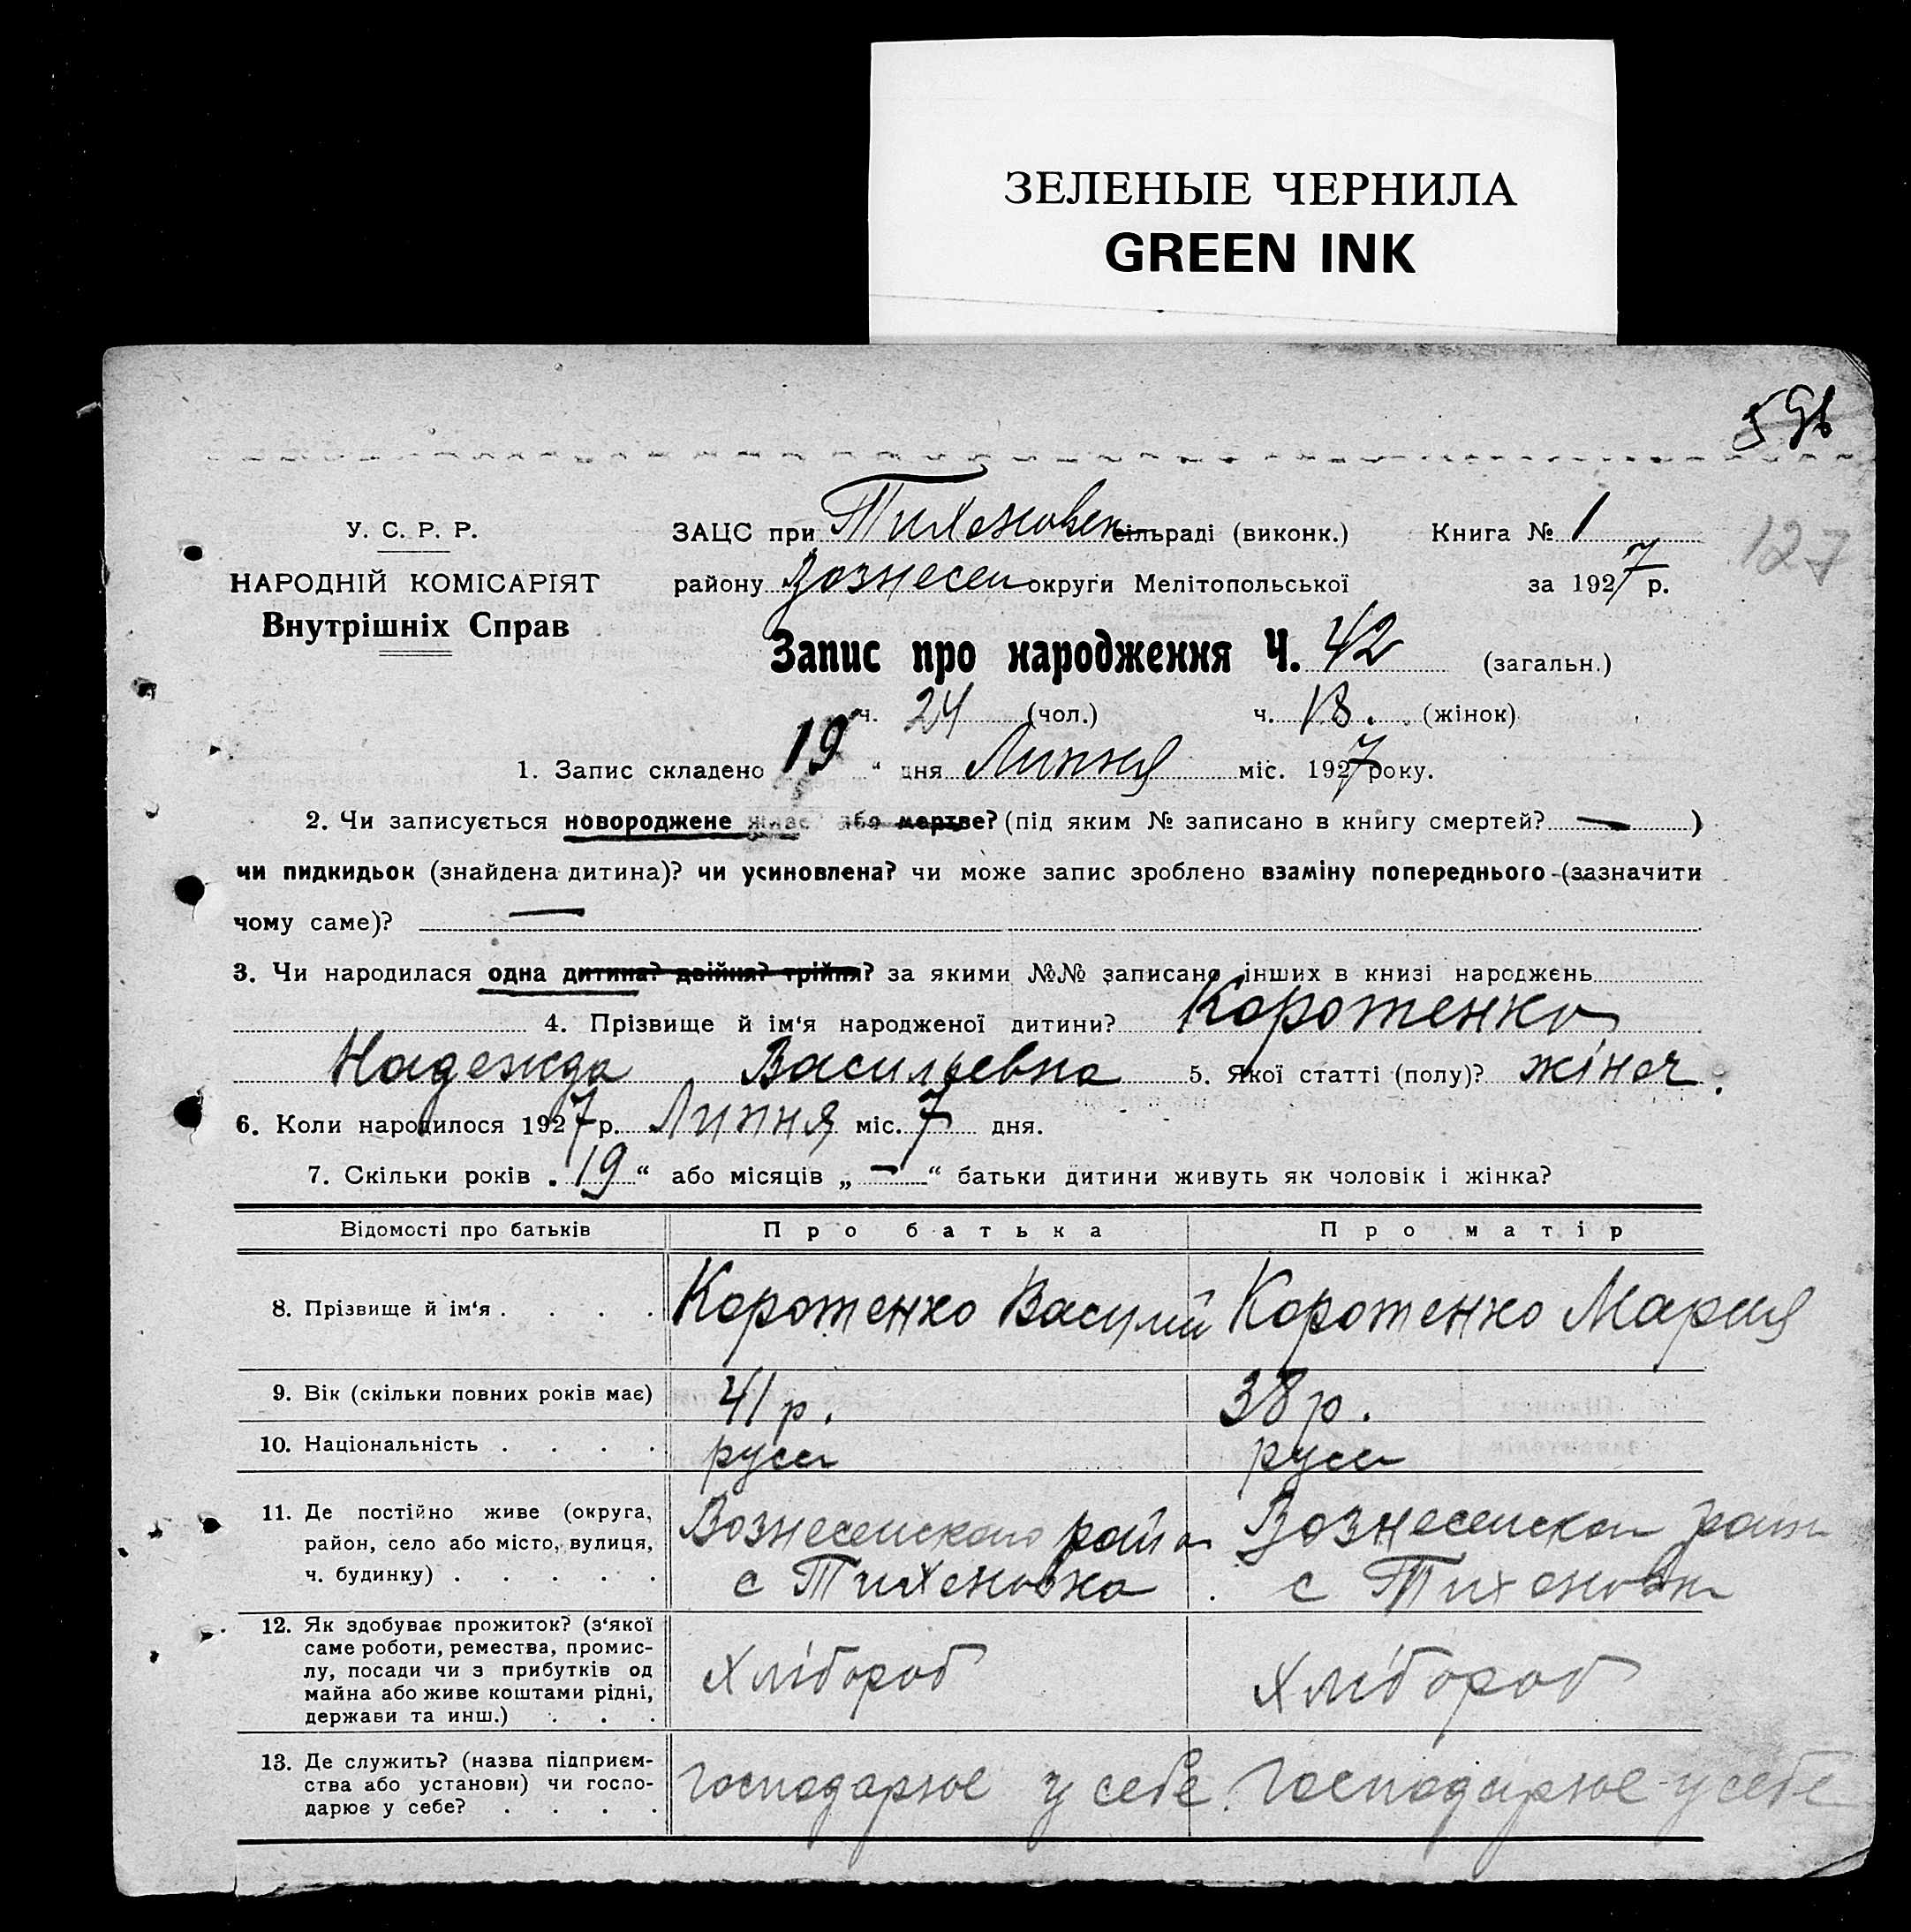 ЗЕЛЕНЫЕ ЧЕРНИЛА
GREEN INK
У. С. Р. Р.
НАРОДНІЙ КОМІСАРІЯТ
Внутрішніх Справ
ЗАЦС при Тихоновск сільраді (виконк.) Книга № 1
району Вознесен округи Мелітопольської за 1927 р.
127
Запис про народження Ч. 42 (загальн.)
ч. 24 (чол.) ч. 18. (жінок)
1. Запис складено 19 “ дня Липня міс. 1927 року.
2. Чи записується новороджене живе? або мертве? (під яким № записано в книгу смертей? — )
чи пидкидьок (знайдена дитина)? чи усиновлена? чи може запис зроблено взаміну попереднього (зазначити
чому саме)? —
3. Чи народилася одна дитина? двійня? трійня? за якими №№ записано інших в книзі народжень
4. Прізвище й ім‘я народженої дитини? Коротенко
Надежда Васильевна 5. Якої статті (полу)? жіноч.
6. Коли народилося 1927 р. Липня міс. 7 дня.
7. Скільки років „ 19 “ або місяців „ — “ батьки дитини живуть як чоловік і жінка?
Відомості про батьків Про батька Про матір
8. Прізвище й ім‘я . . . . Коротенко Василий Коротенко Мария
9. Вік (скільки повних років має) 41 р. 38 р.
10. Національність . . . . русс русс
11. Де постійно живе (округа,
район, село або місто, вулиця,
ч. будинку) . . . . .
Вознесенского район
с Тихоновка
Вознесенског район
с Тихоновки
12. Як здобуває прожиток? (з‘якої
саме роботи, ремества, промис-
лу, посади чи з прибутків од
майна або живе коштами рідні,
держави та инш.) . . .
Хлібороб Хлібороб
13. Де служить? (назва підприєм-
ства або установи) чи госпо-
дарює у себе? . . . .
господарює у себе. господарює у себе